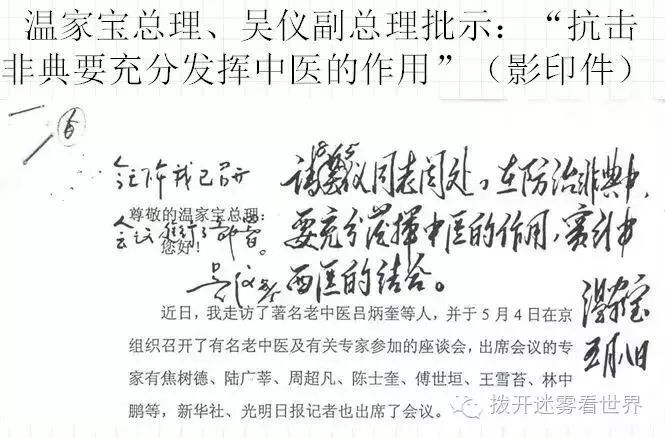 温家宝总理、吴仪副总理批示：“抗击
非典要充分发挥中医的作用”（影印件）
请吴仪同志阅处，在防治非典中，
要充分发挥中医的作用，实行中
西医的结合。
温家宝
五月八日
今上午我已召开
会议进行了部署。
吴仪
尊敬的温家宝总理：
您好！
近日，我走访了著名老中医吕炳奎等人，并于5月4日在京
组织召开了有名老中医及有关专家参加的座谈会，出席会议的专
家有焦树德、陆广莘、周超凡、陈士奎、傅世垣、王雪苔、林中
鹏等，新华社、光明日报记者也出席了会议。
拨开迷雾看世界